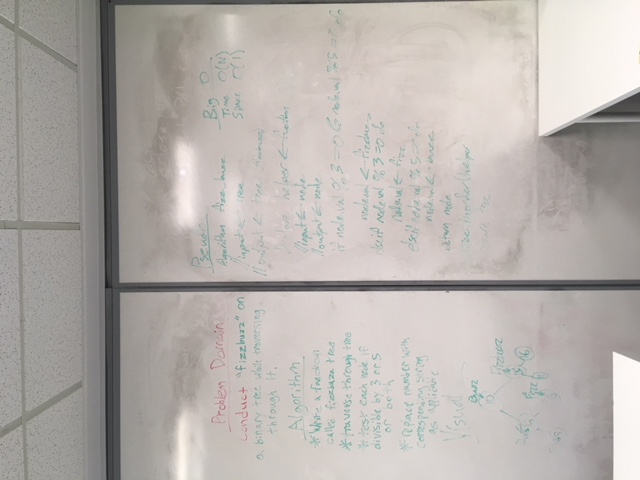 Problem Domain
Conduct "fizzbuzz" on
a binary tree while traversing
through it.
Algorithm
* Write a function
called fizzbuzz tree
* traverse through tree
* test each node if
divisible by 3 or 5
or both
* replace number with
corresponding string
as
Visual
Buzz
Fizzbuzz
Fizz
Pseudo
Algorithm fizz_buzz
//input ← tree
//output ← tree
helper ← function
//input ← node
//output ← node
if node val % 3 = 0 & node val % 5 = 0 do
nodeval ← fizzbuzz
else if node val % 3 = 0 do
nodeval ← fizz
else if node val % 5 = do
nodeval ←
return node
inorder(helper
Big O
Time O(N)
Space O(1)